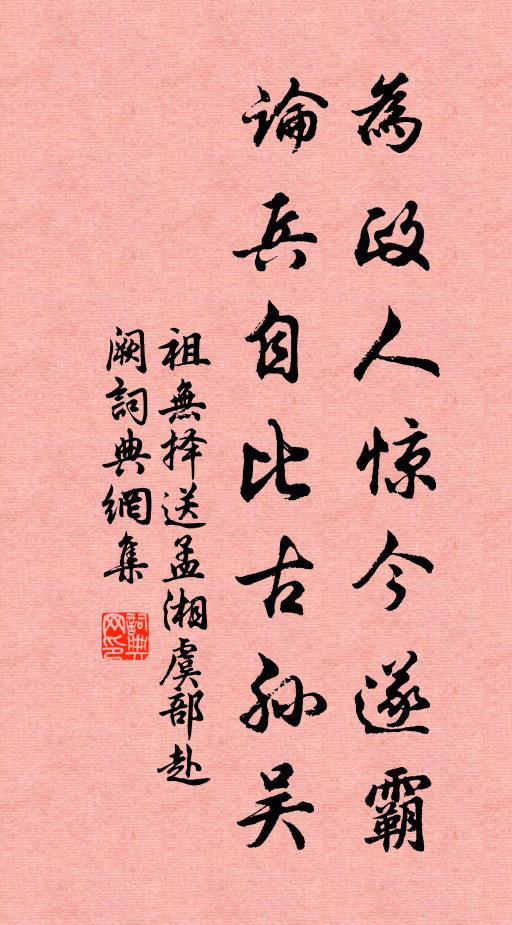 為政人惊今遂霸
論兵自比古孙吴
祖無择送孟湘虞部赴
阙詞典網集
詞典网印